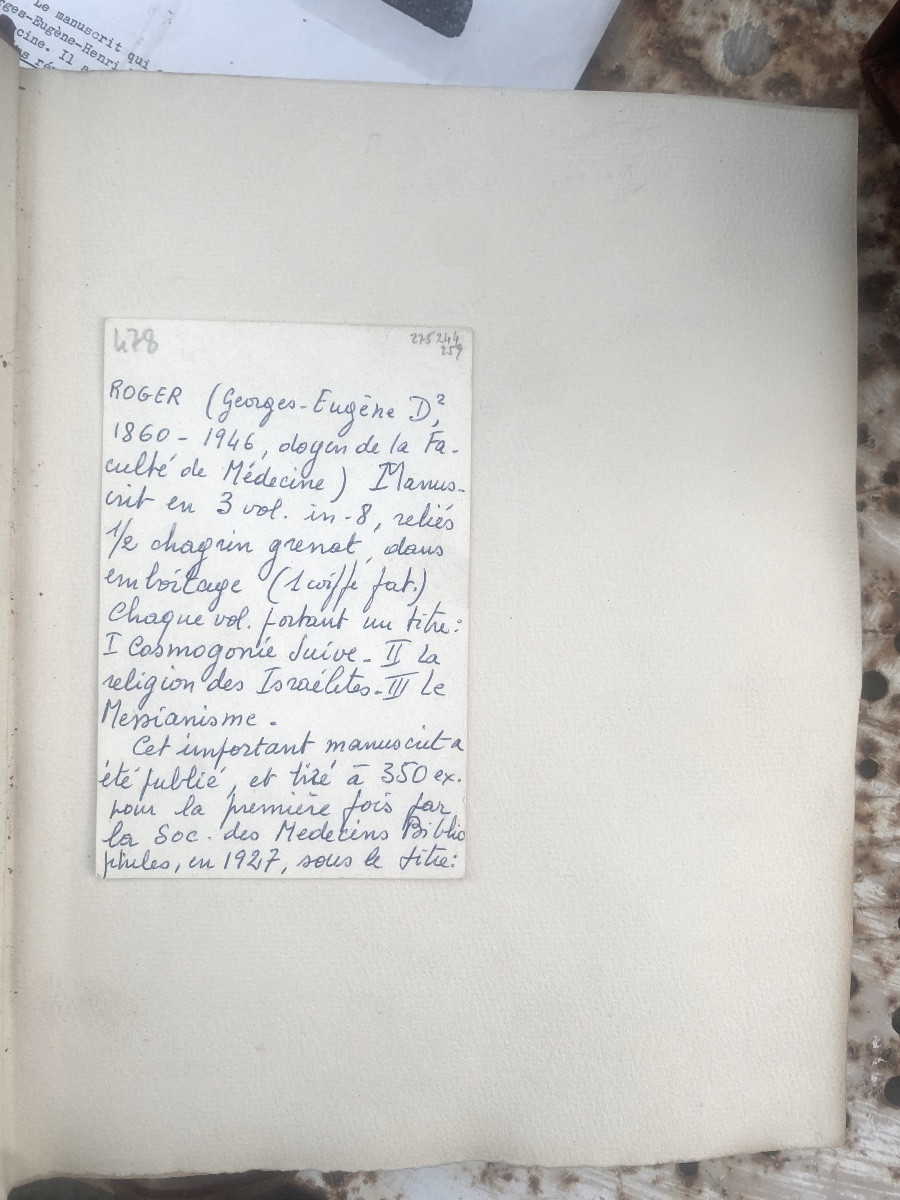 Le manuscrit qui
ges-Eugène-Henri
cine. Il a
478
275 244
259
ROGER (Georges-Eugène Dr,
1860-1946, doyen de la Fa-
culté de Médecine) Manus-
crit en 3 vol. in-8, reliés
1/2 chagrin grenat, dans
emboîtage (1 coiffe fat.)
Chaque vol. portant un titre:
I Cosmogonie Juive - II La
religion des Israélites - III Le
Messianisme.
Cet important manuscrit a
été publié, et tiré à 350 ex.
pour la première fois par
la Soc. des Medecins Biblio
philes, en 1927, sous le titre: